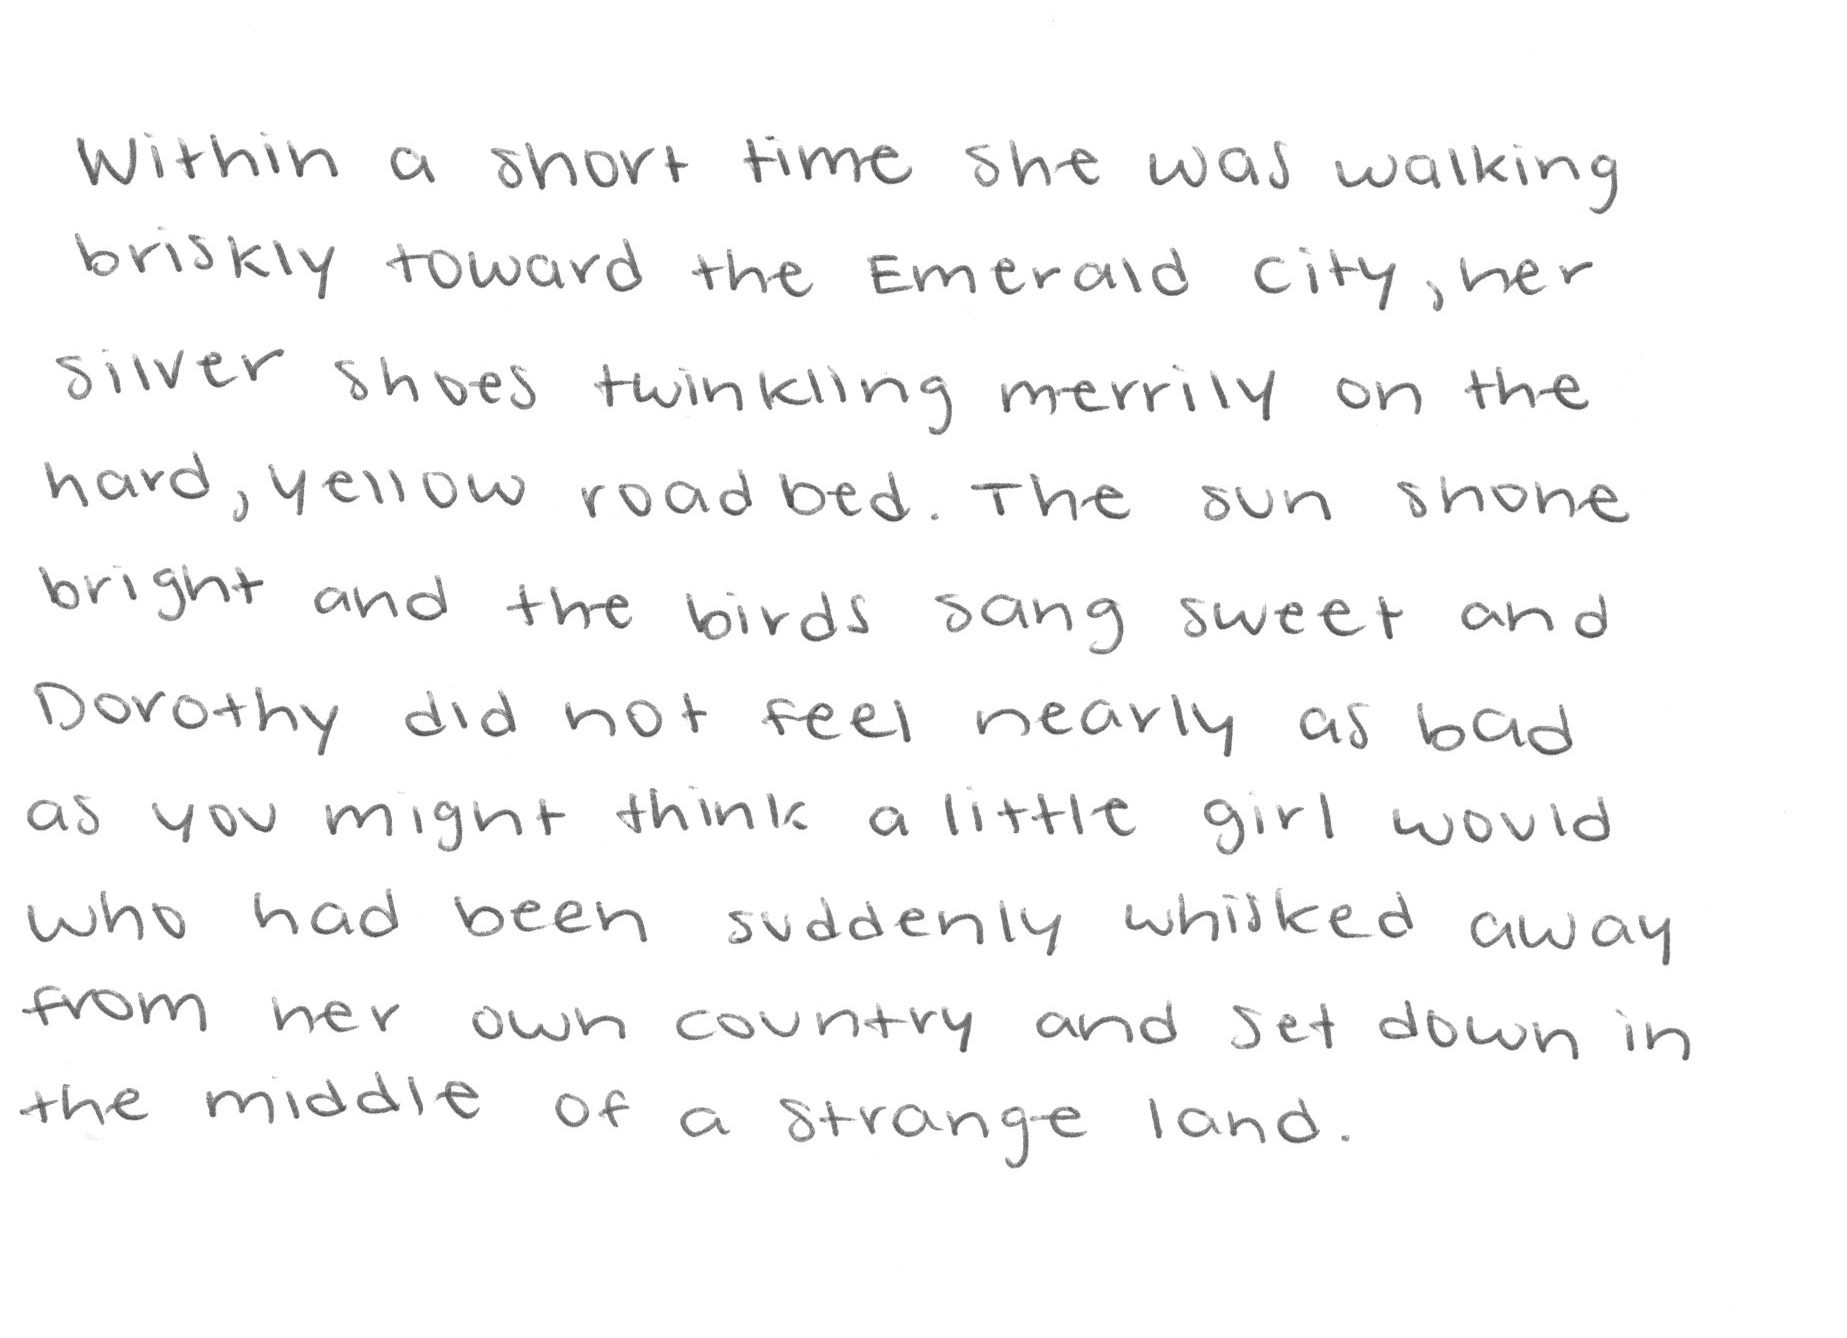 Within a short time she was walking
briskly toward the Emerald City, her
silver shoes twinkling merrily on the
hard, yellow road bed. The sun shone
bright and the birds sang sweet and
Dorothy did not feel nearly as bad
as you might think a little girl would
who had been suddenly whisked away
from her own country and set down in
the middle of a strange land.